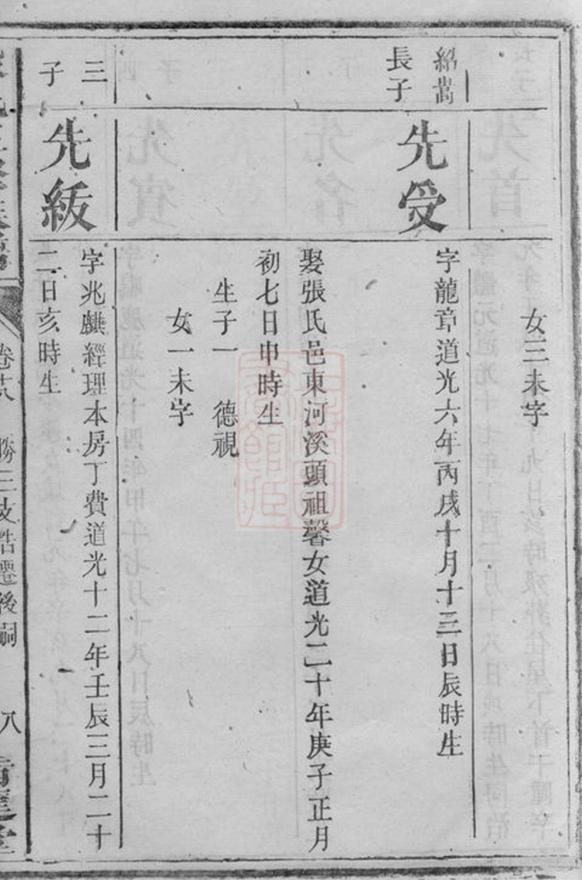 女三未字
紹嵩
長子
先受
字龍章道光六年丙戌十月十三日辰時生
娶張氏邑東河溪頭祖馨女道光二十年庚子正月
初七日申時生
生子一 德視
女一未字
三
子
先級
字兆麟經理本房丁費道光十二年壬辰三月二十
二日亥時生
卷十八 勝三支浩遷後嗣 八